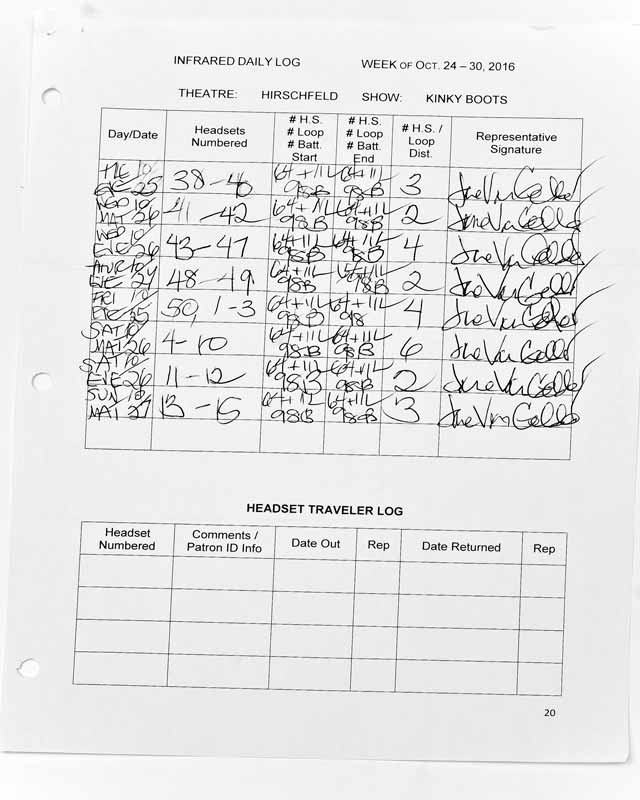 INFRARED DAILY LOG WEEK OF OCT. 24 – 30, 2016
THEATRE: HIRSCHFELD SHOW: KINKY BOOTS
Day/Date
Headsets
Numbered
# H.S.
# Loop
# Batt.
Start
# H.S.
# Loop
# Batt.
End
# H.S. /
Loop
Dist.
Representative
Signature
10/
EVE 25
38-40
64+11L
98B
64+11L
98B
3
WED 10/
MAT 26
41-42
64+11L
98B
64+11L
98B
2
WED 10/
EVE 26
43-47
64+11L
98B
64+11L
98B
4
EVE 27
48-49
64+11L
98B
64+11L
98B
2
FRI 10/
EVE 25
50, 1-3
64+11L
98B
64+11L
98
4
SAT 10/
MAT 26
4-10
64+11L
98B
64+11L
98B
6
SAT 10/
EVE 26
11-12
64+11L
98B
64+11L
98B
2
SUN 10/
MAT 27
13-15
64+11L
98B
64+11L
98B
3
HEADSET TRAVELER LOG
Headset
Numbered
Comments /
Patron ID Info
Date Out
Rep
Date Returned
Rep
20